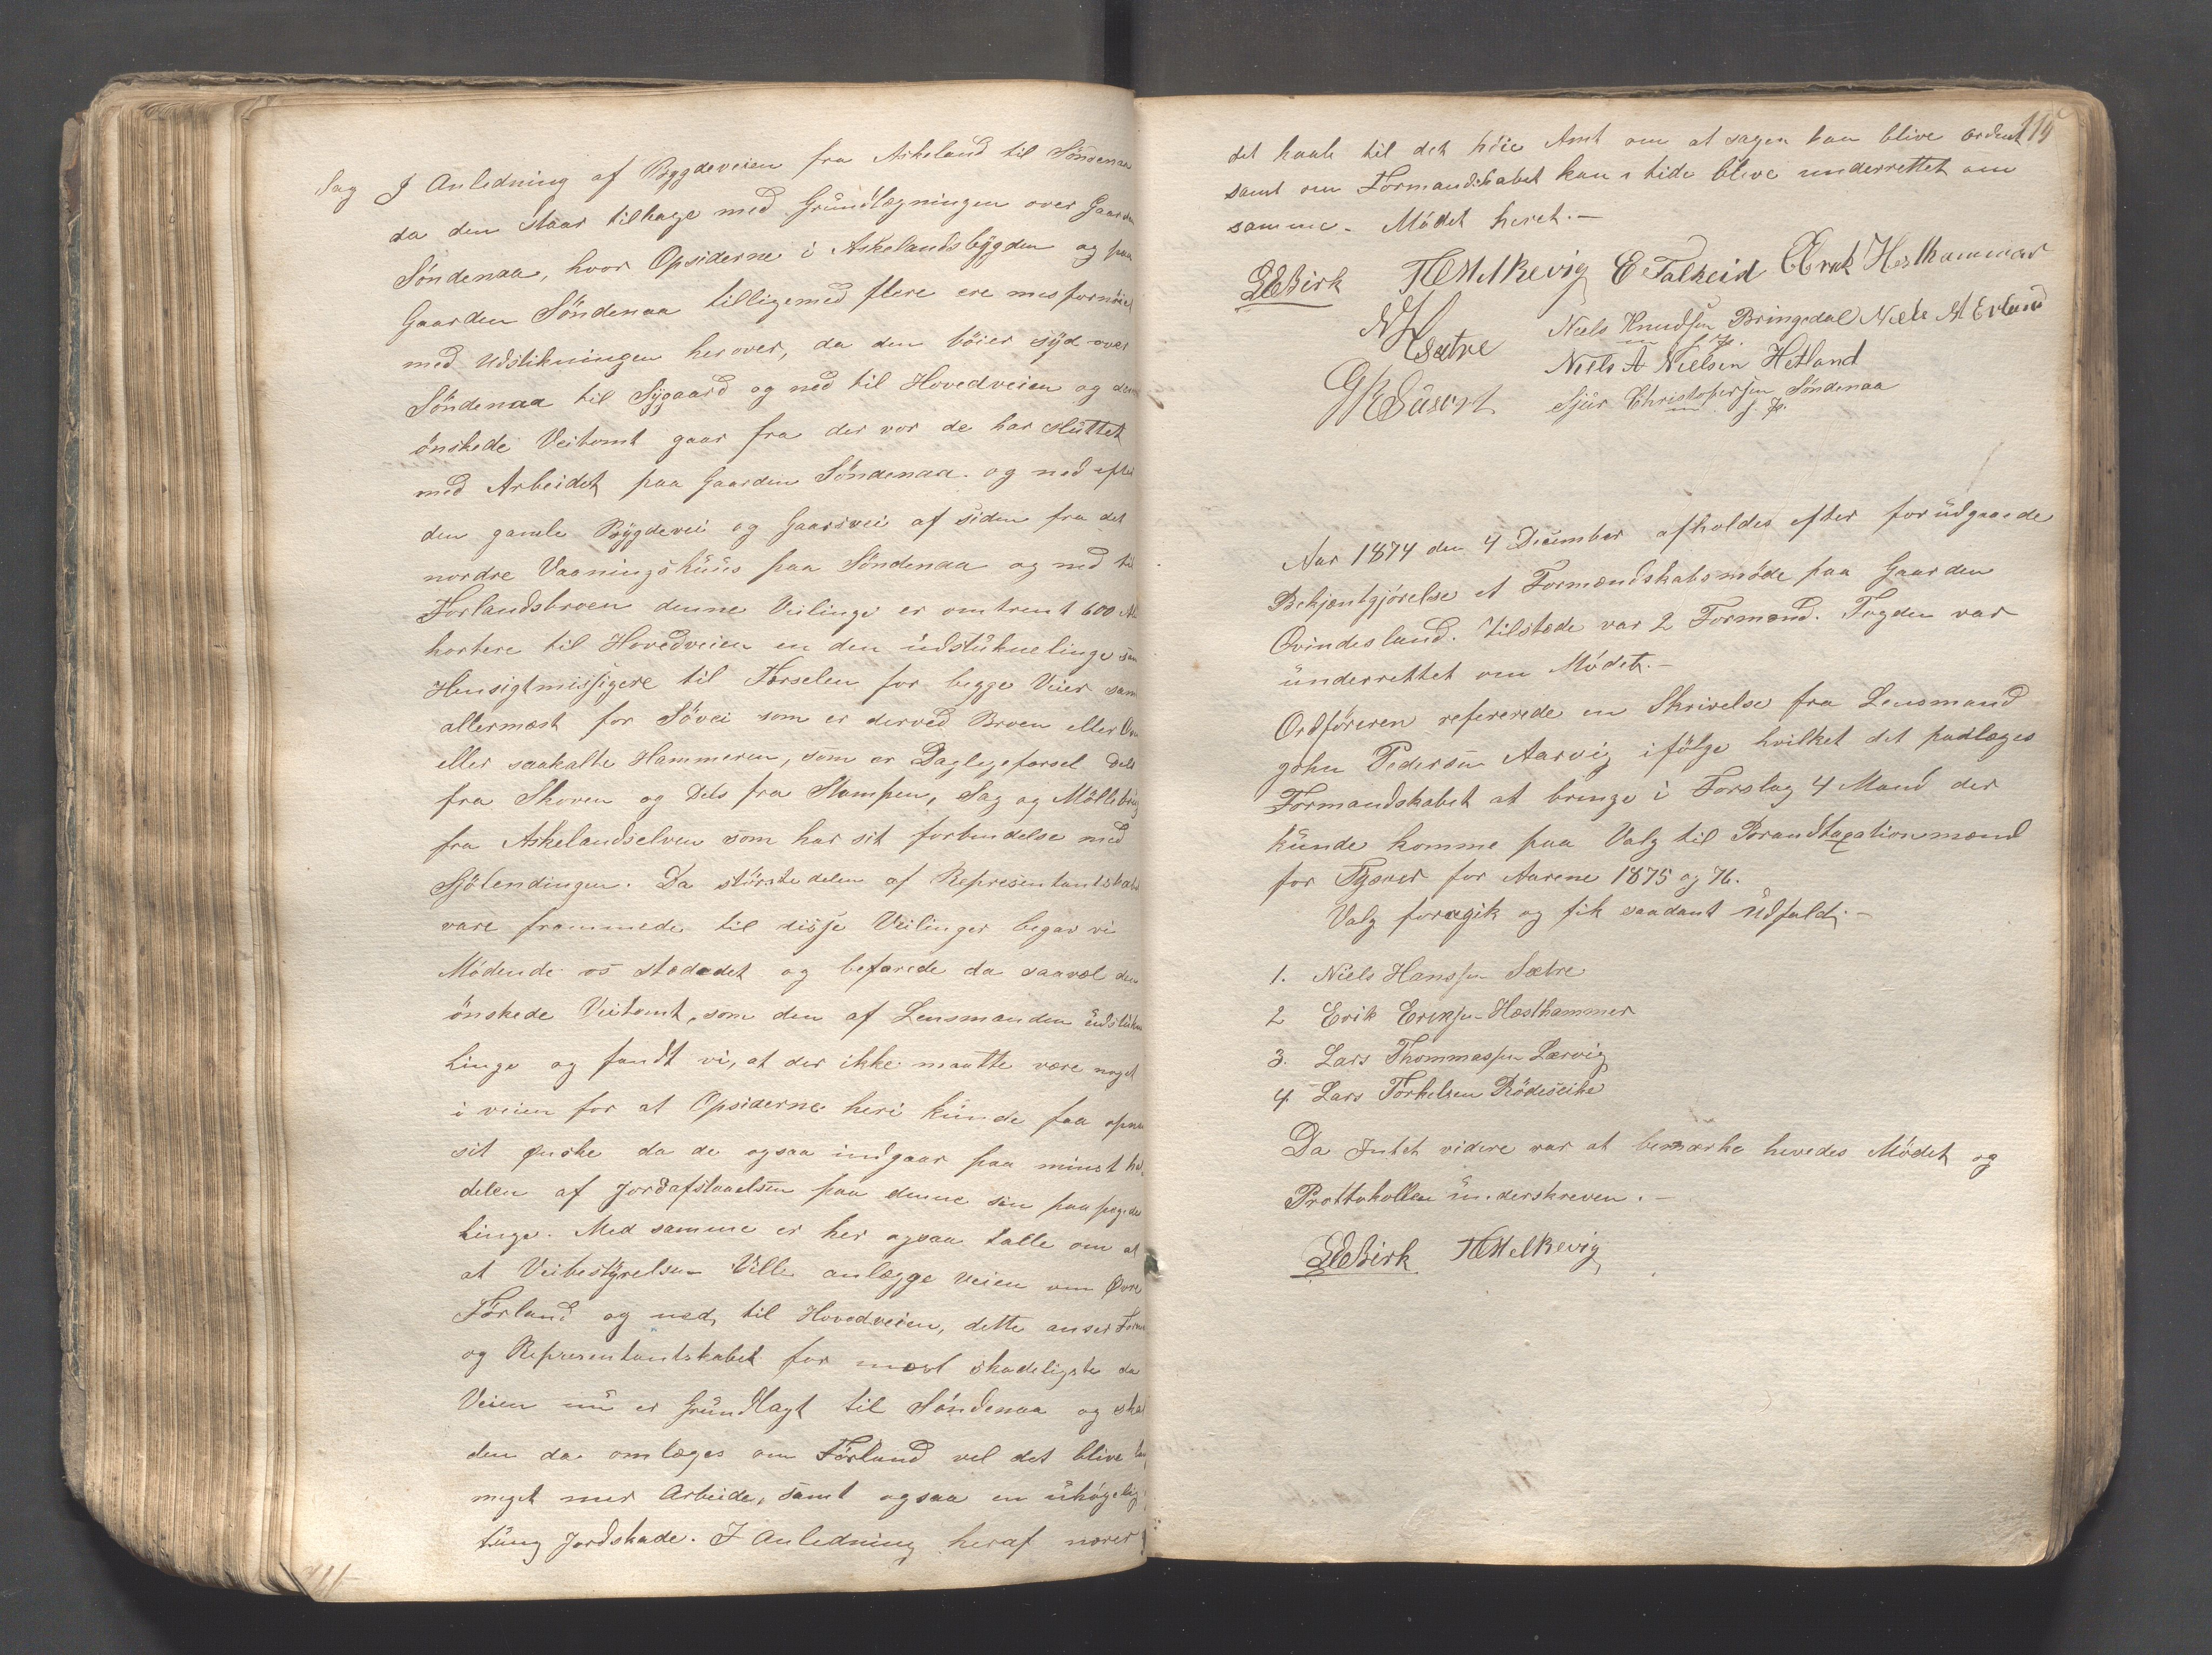 Sag I Anledning af Bygdeveien fra Askeland til Söndenaa
da den staar tilbage med Grundlægningen over Gaarden
Söndenaa, hvor Opsiderne i Askelandsbygden og paa
Gaarden Söndenaa tilligemed flere ere misfornöiet
med Udstikningen herover, da den böier syd over
Söndenaa til Sygaard og ned til Hovedveien og den
önskede Veitomt gaar fra der vor de har sluttet
med Arbeidet paa Gaarden Söndenaa. og ned efter
den gamle Bygdevei og Gaarsvei af siden fra det
nordre Vaaningshuus paa Söndenaa og ned til
Forlandsbroen denne Veilinge er omtrent 600 Al
kortere til Hovedveien en den udstukne linge sam
Hensigtmæssigere til Færselen for begge Veier sam
allermæst for Sövei som er derved Broen eller
eller saakalte Hammeren, som er Dagligefærsel Dels
fra Skoven og Dels fra Stampen, Sag og Möllebrug
fra Askelandselven som har sit forbindelse med
Sjölendingen. Da störstedelen af Representantskabet
vare frammede til disse Veilinger begav vi
Mödende os stædedet og befarede da saavæl den
önskede Veitomt, som den af Lensmanden udstukne
Linge og fandt vi, at der ikke maatte være noget
i veien for at Opsiderne heri kunde faa opnaa
sit ønske da de ogsaa indgaar paa minst hal
delen af Jordafstaaelsen paa denne sin paapegede
Linge. Med samme er her ogsaa talle om at
at Veibestyrelsen Ville anlægge Veien om Øvre
Förland og ned til Hovedveien, dette anser Form
og Representantskabet for mæst skadeligste da
Veien nu er Grundlagt til Söndenaa og skal
den da omlæges om Förland vel det blive
meget mer Arbeide, samt ogsaa en uhögelig
tung Jordskade. I Anledning heraf nærer
115
det haab til det höie Amt om at sagen kan blive ordent
samt om Formandskabet kan i tide blive underrettet om
samme. Mödet hevet.—
Birk T Melkevig E Falkeid E Erik Hesthammar
N H Sætre Niels Knudsen Bringedal Niels M Erland
m. f. P.
Niels A Nielsen Hetland
Sjur Christophersen Söndenaa
m. f. P.
Aar 1874 den 4 December afholdes efter forudgaaede
Bekjentgjörelse et Formændskabsmöde paa Gaarden
Qvindesland. Tilstede var 2 Formænd. Fogden var
underrettet om Mödet.—
Ordföreren refererede en Skrivelse fra Lensmand
John Pedersen Aarvig ifölge hvilket det paalæges
Formandskabet at bringe i Forslag 4 Mand der
kunde komme paa Valg til Brandtaxationsmænd
for Tysvær for Aarene 1875 og 76.
Valg foregik og fik saadant Udfald:—
1. Niels Hanssen Sætre
2 Erik Eriksen Hæsthammer
3. Lars Thommassen Lærvig
4. Lars Torkelsen Rödeseike
Da Intet videre var at bemærke hevedes Mödet og
Prottokollen underskreven.—
Birk T Melkevig